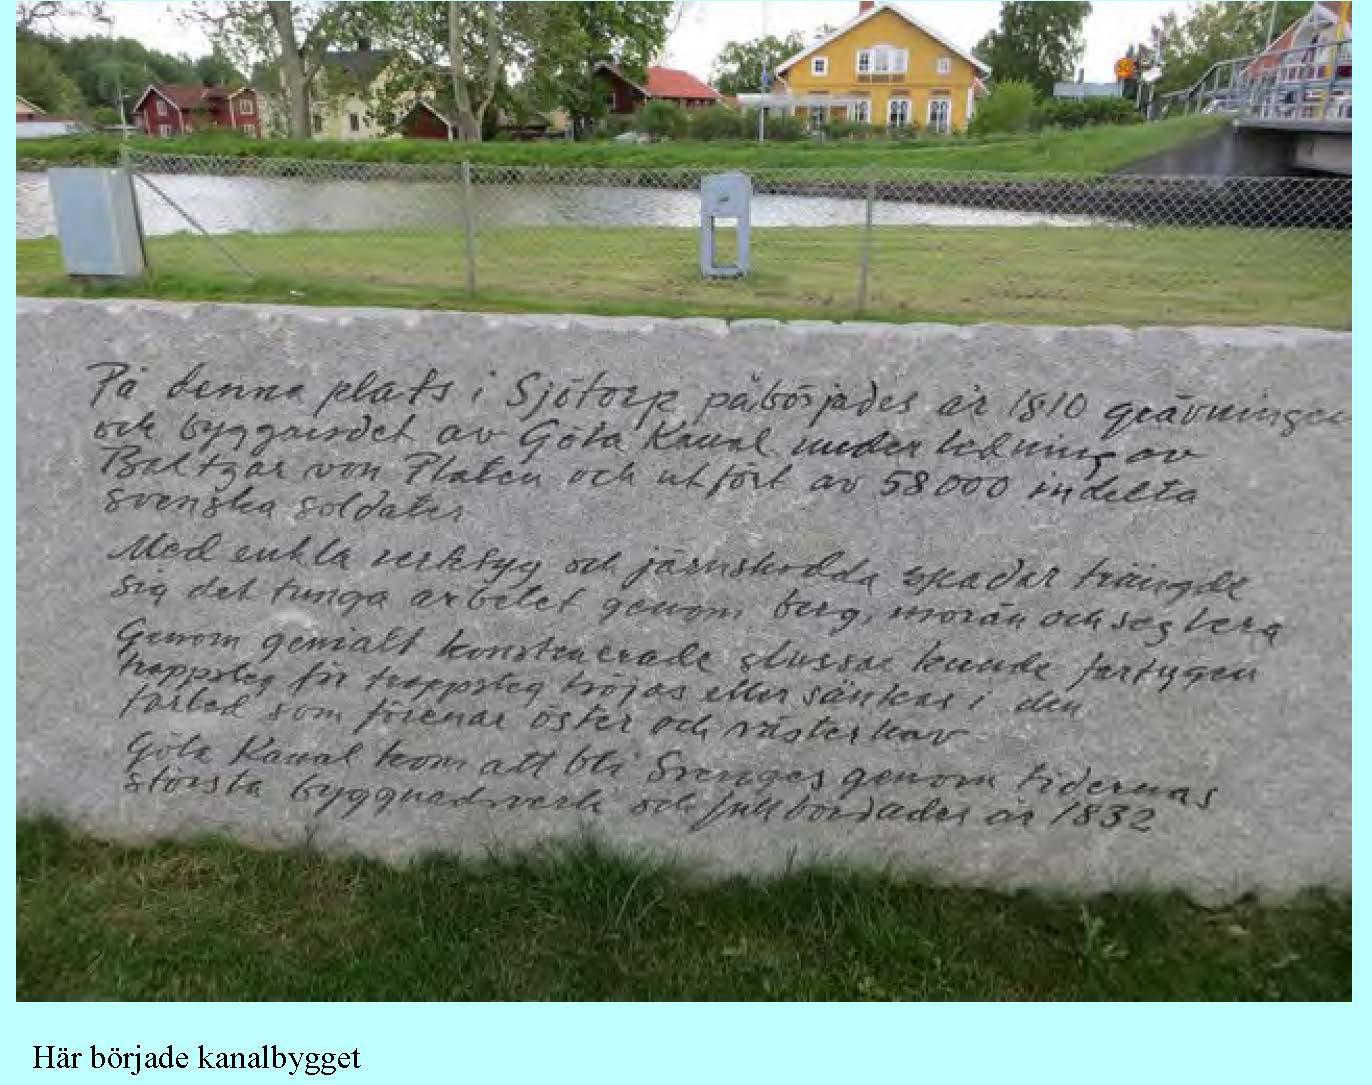 På denna plats i Sjötorp påbörjades år 1810 grävningen
och byggandet av Göta Kanal under ledning av
Baltzar von Platen och utfört av 58000 indelta
svenska soldater
Med enkla verktyg och järnskodda spadar trängde
sig det tunga arbetet genom berg, morän och seg lera
Genom genialt konstruerade slussar kunde fartygen
trappsteg för trappsteg höjas eller sänkas i den
farled som förenar öster och västerhav
Göta Kanal kom att bli Sveriges genom tidernas
största byggnadsverk och fullbordades år 1832
Här började kanalbygget